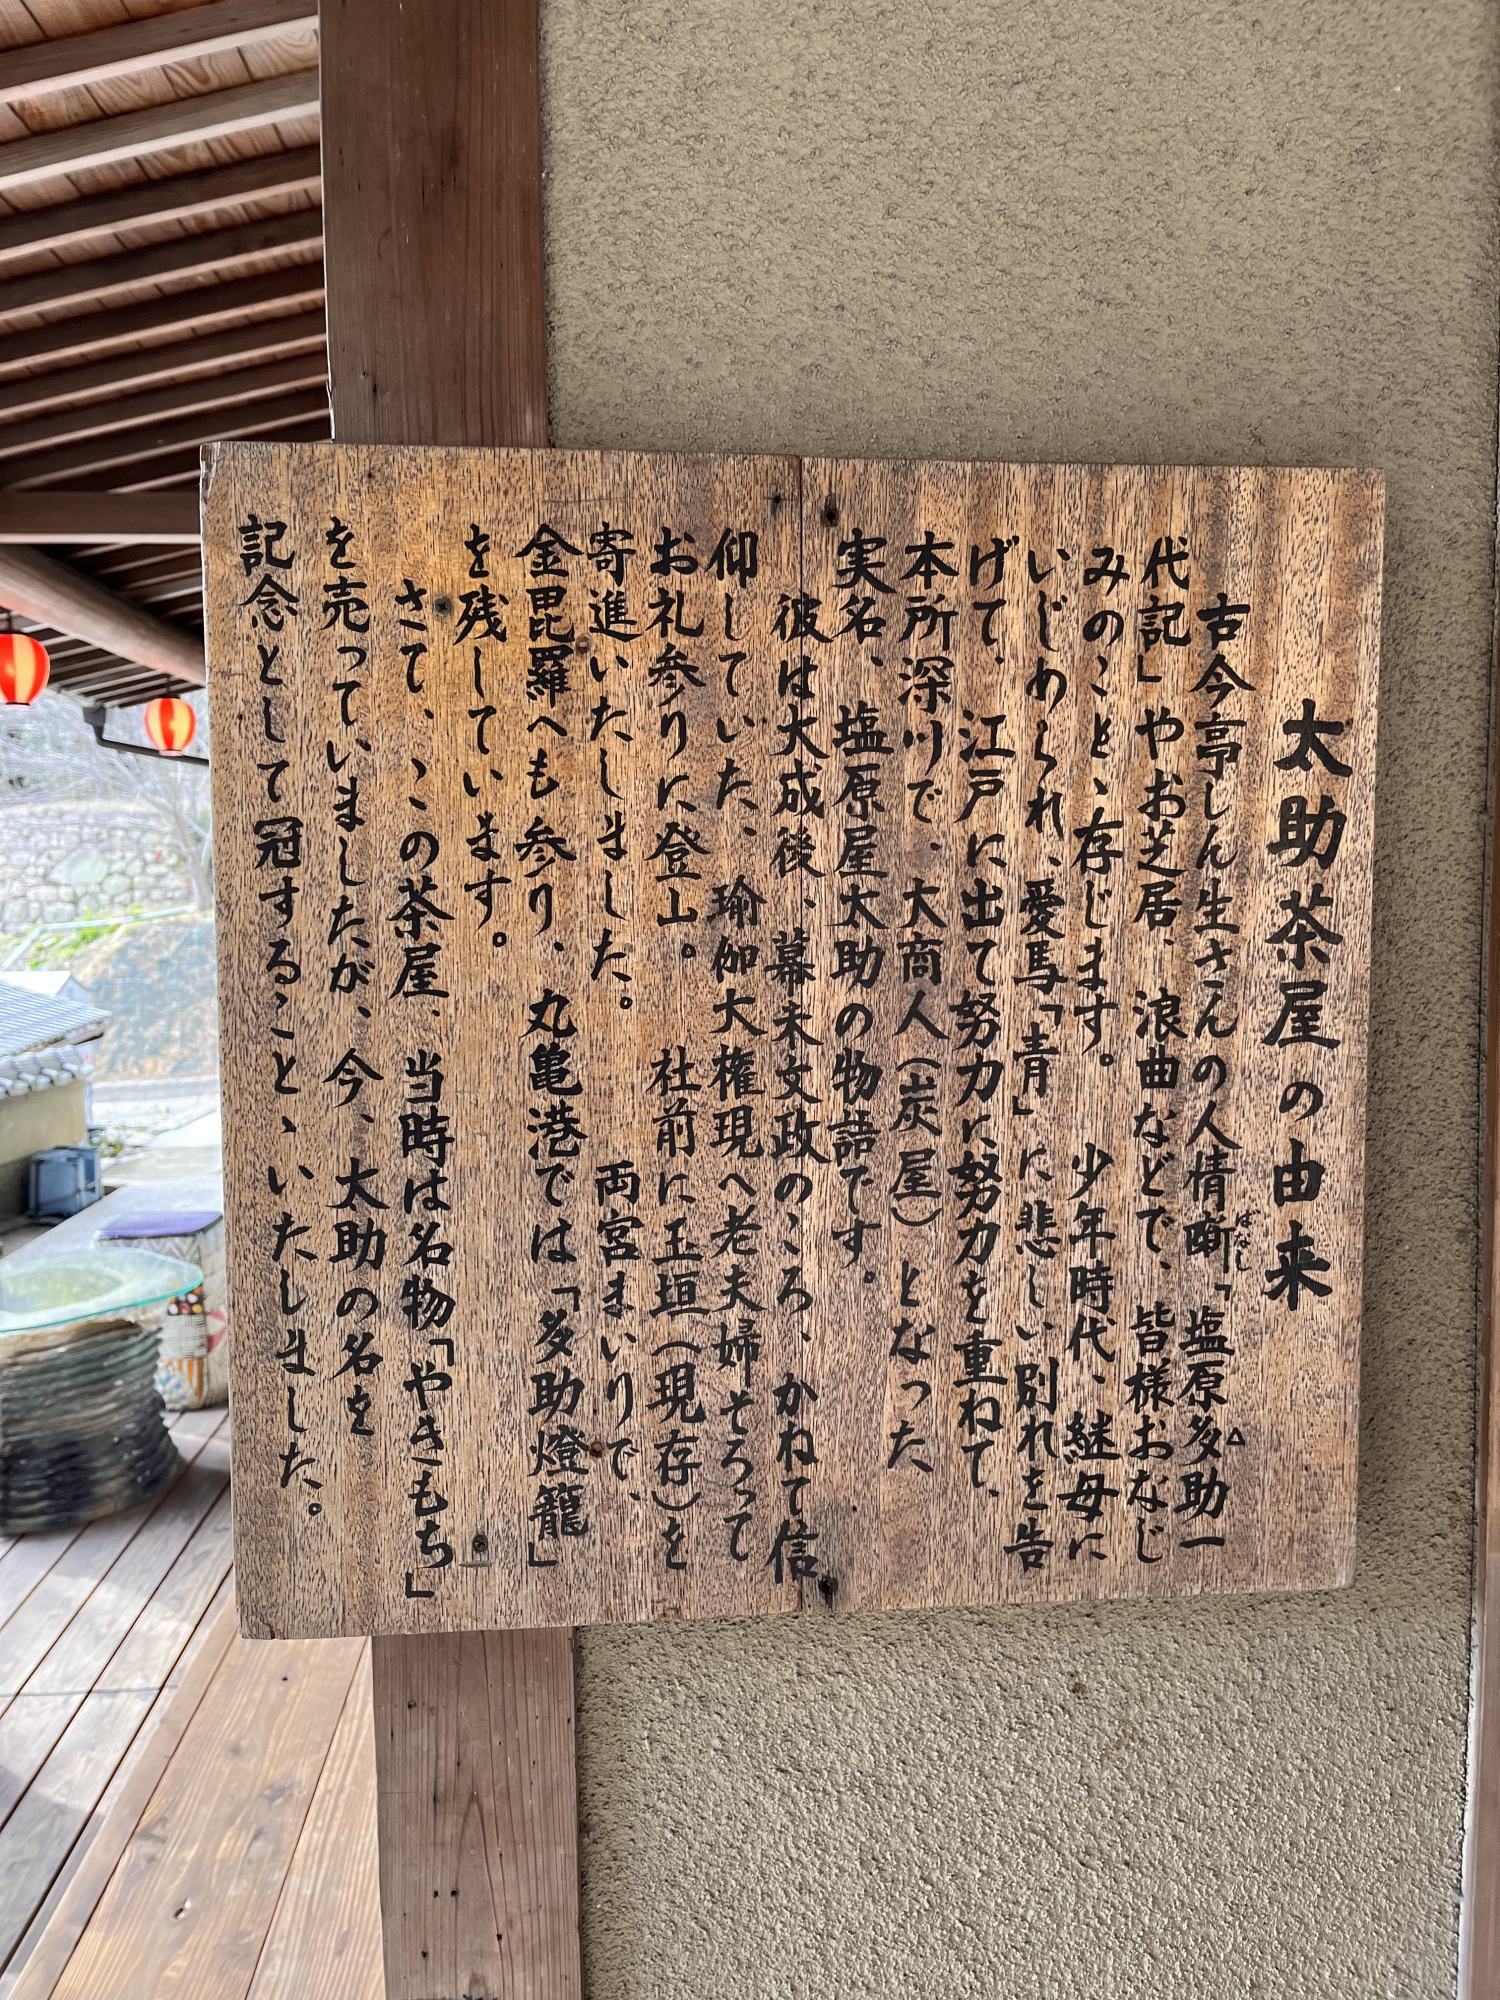 太助茶屋の由来
古今亭しん生さんの人情噺「塩原多助一
ばなし
△
代記」やお芝居、浪曲などで、皆様おなじ
みのことゝ存じます。少年時代、継母に
いじめられ、愛馬「青」に悲しい別れを告
げて、江戸に出て努力に努力を重ねて、
本所深川で、大商人（炭屋）となった
実名、塩原屋太助の物語です。
彼は大成後、幕末文政のころ、かねて信
仰していた、瑜伽大権現へ老夫婦そろって
お礼参りに登山。社前に玉垣（現存）を
寄進いたしました。両宮まいりで、
金毘羅へも参り、丸亀港では「多助燈籠」
を残しています。
さて、この茶屋、当時は名物「やきもち」
を売っていましたが、今、太助の名を
記念として冠することゝいたしました。